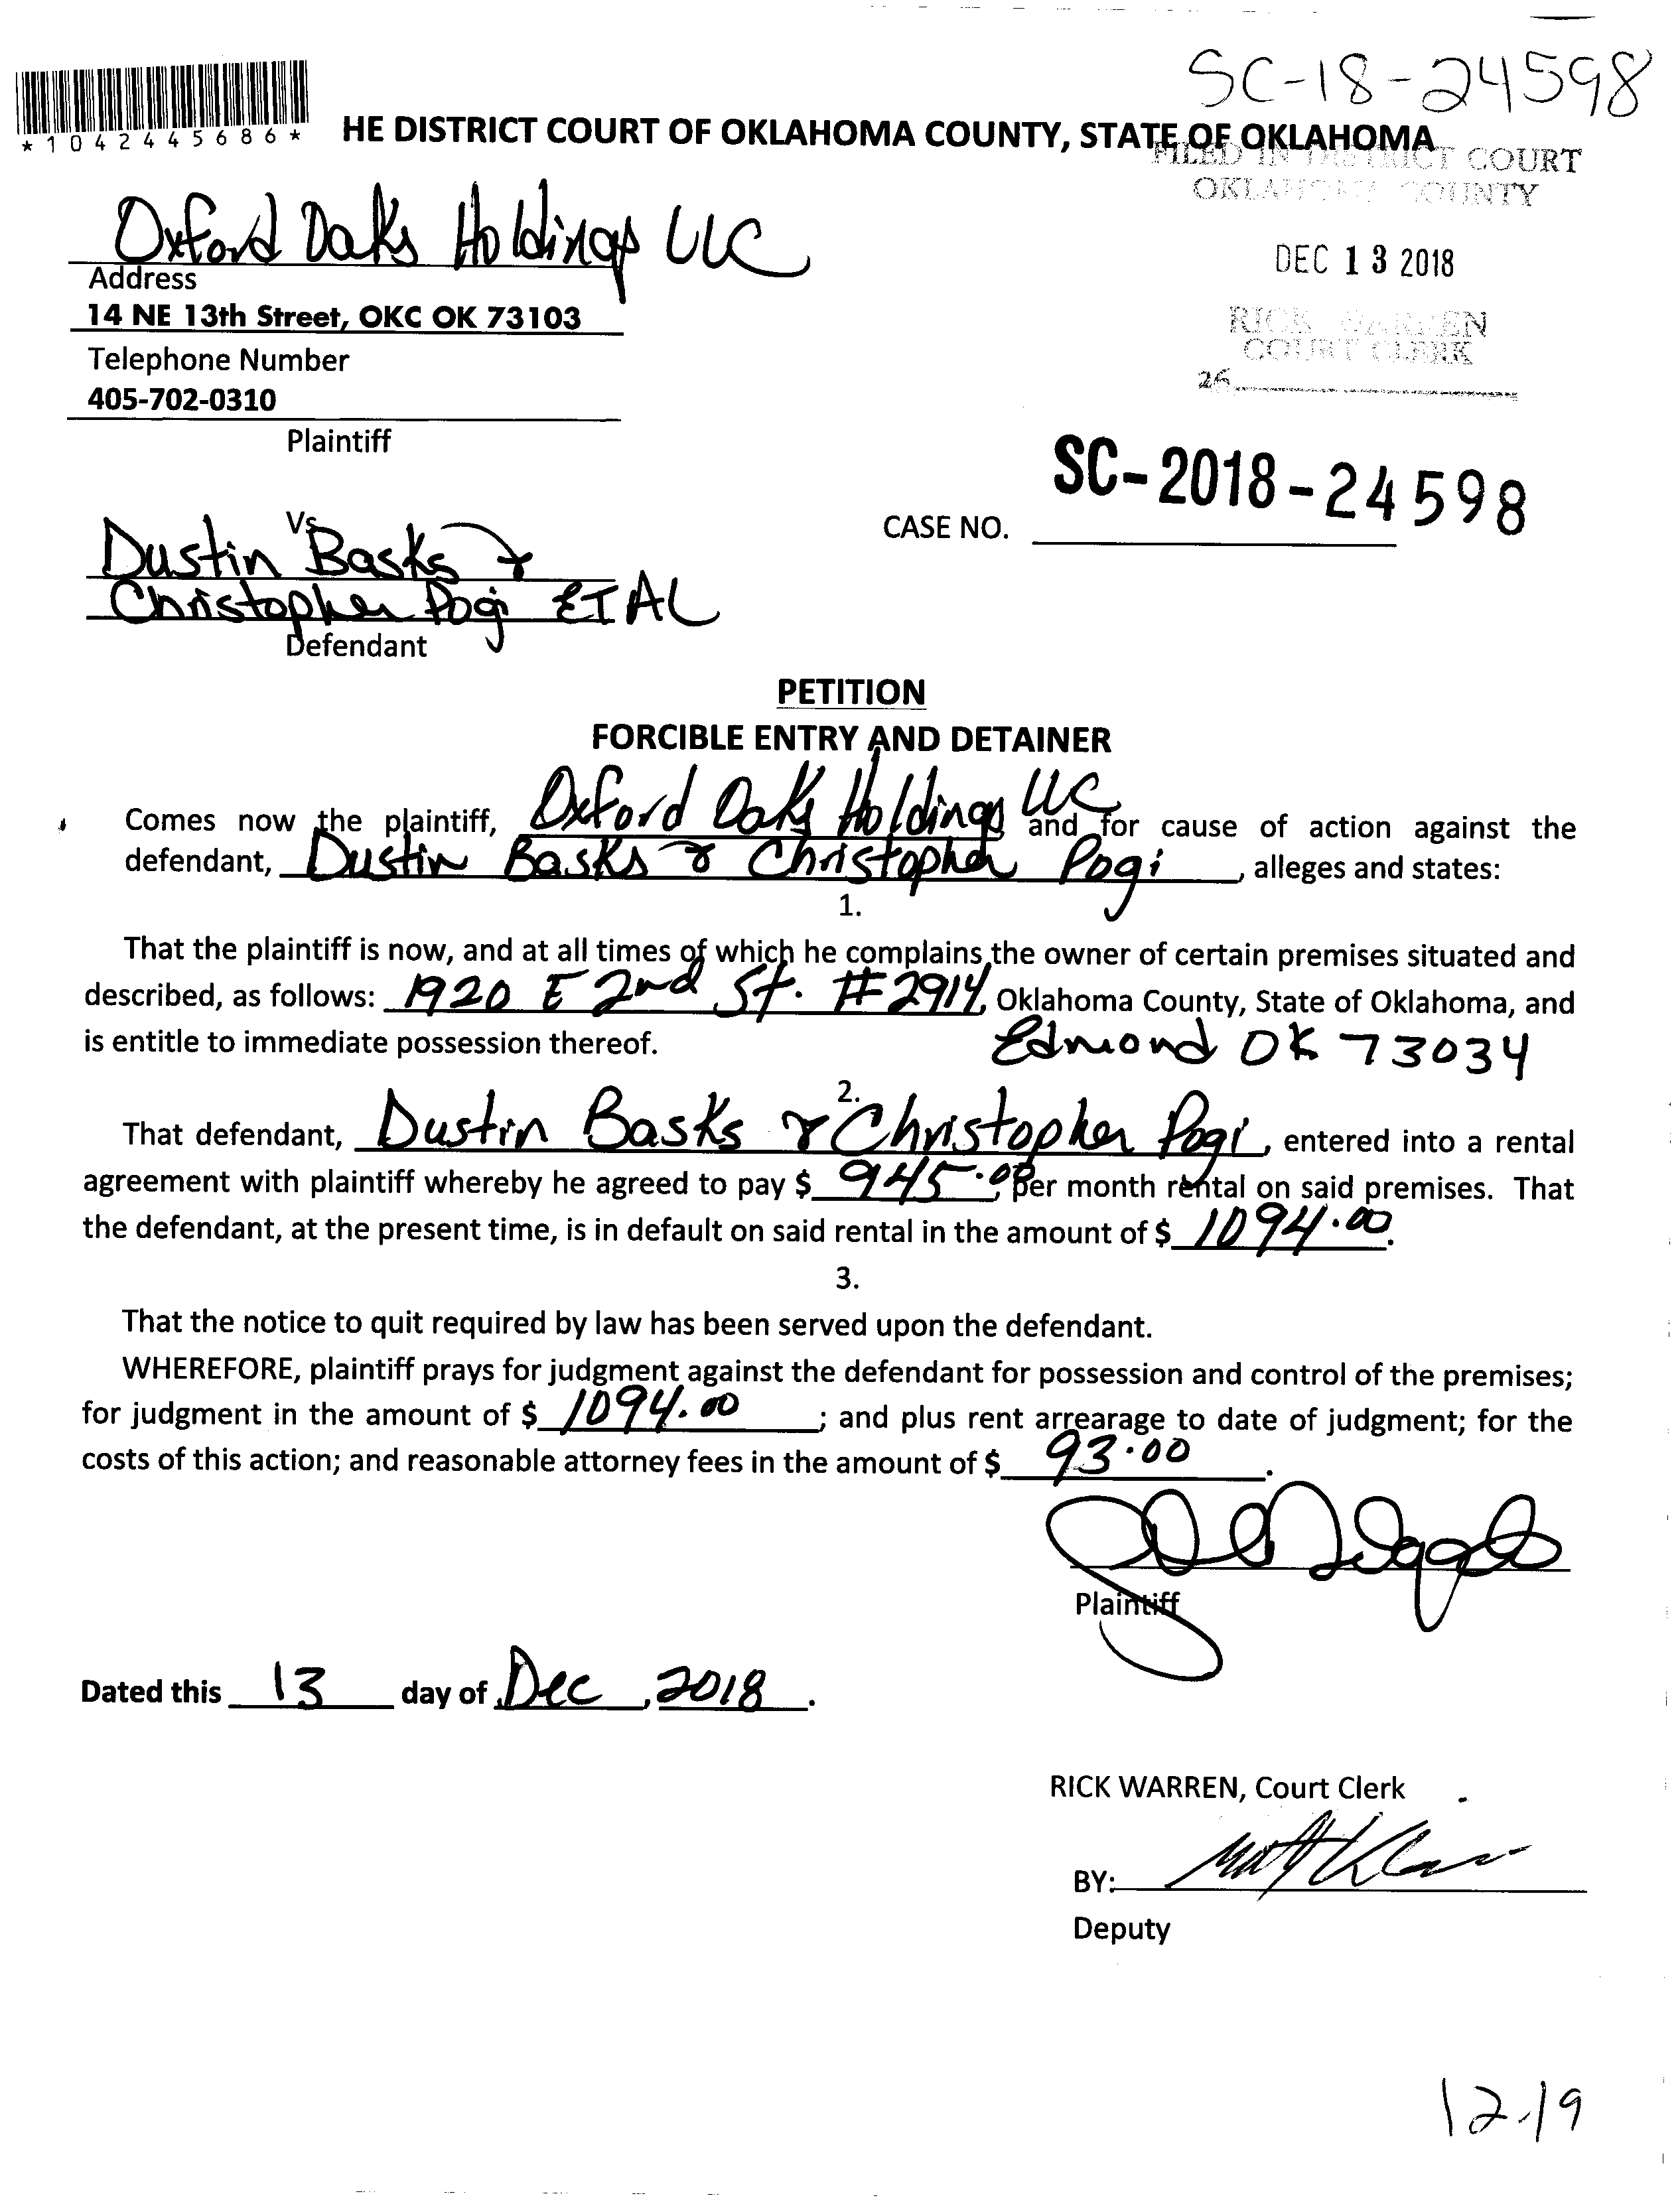 SC-18-24598
*1042445686*
HE DISTRICT COURT OF OKLAHOMA COUNTY, STATE OF OKLAHOMA
FILED IN DISTRICT COURT
OKLAHOMA COUNTY
Oxford Oaks Holdings LLC
DEC 13 2018
Address
14 NE 13th Street, OKC OK 73103
RICK WARREN
COURT CLERK
Telephone Number
26
405-702-0310
Plaintiff
SC-2018-24598
CASE NO.
Vs
Dustin Basks &
Christopher Pogi ET AL
Defendant
PETITION
FORCIBLE ENTRY AND DETAINER
Comes now the plaintiff, Oxford Oaks Holdings LLC and for cause of action against the
defendant, Dustin Basks & Christopher Pogi, alleges and states:
1.
That the plaintiff is now, and at all times of which he complains, the owner of certain premises situated and
described, as follows: 1920 E 2nd St. #2914, Oklahoma County, State of Oklahoma, and
is entitle to immediate possession thereof. Edmond OK 73034
2.
That defendant, Dustin Basks & Christopher Pogi, entered into a rental
agreement with plaintiff whereby he agreed to pay $ 945.00, per month rental on said premises. That
the defendant, at the present time, is in default on said rental in the amount of $ 1094.00.
3.
That the notice to quit required by law has been served upon the defendant.
WHEREFORE, plaintiff prays for judgment against the defendant for possession and control of the premises;
for judgment in the amount of $ 1094.00; and plus rent arrearage to date of judgment; for the
costs of this action; and reasonable attorney fees in the amount of $ 93.00.
Plaintiff
Dated this 13 day of Dec, 2018.
RICK WARREN, Court Clerk
BY:
Deputy
12-19